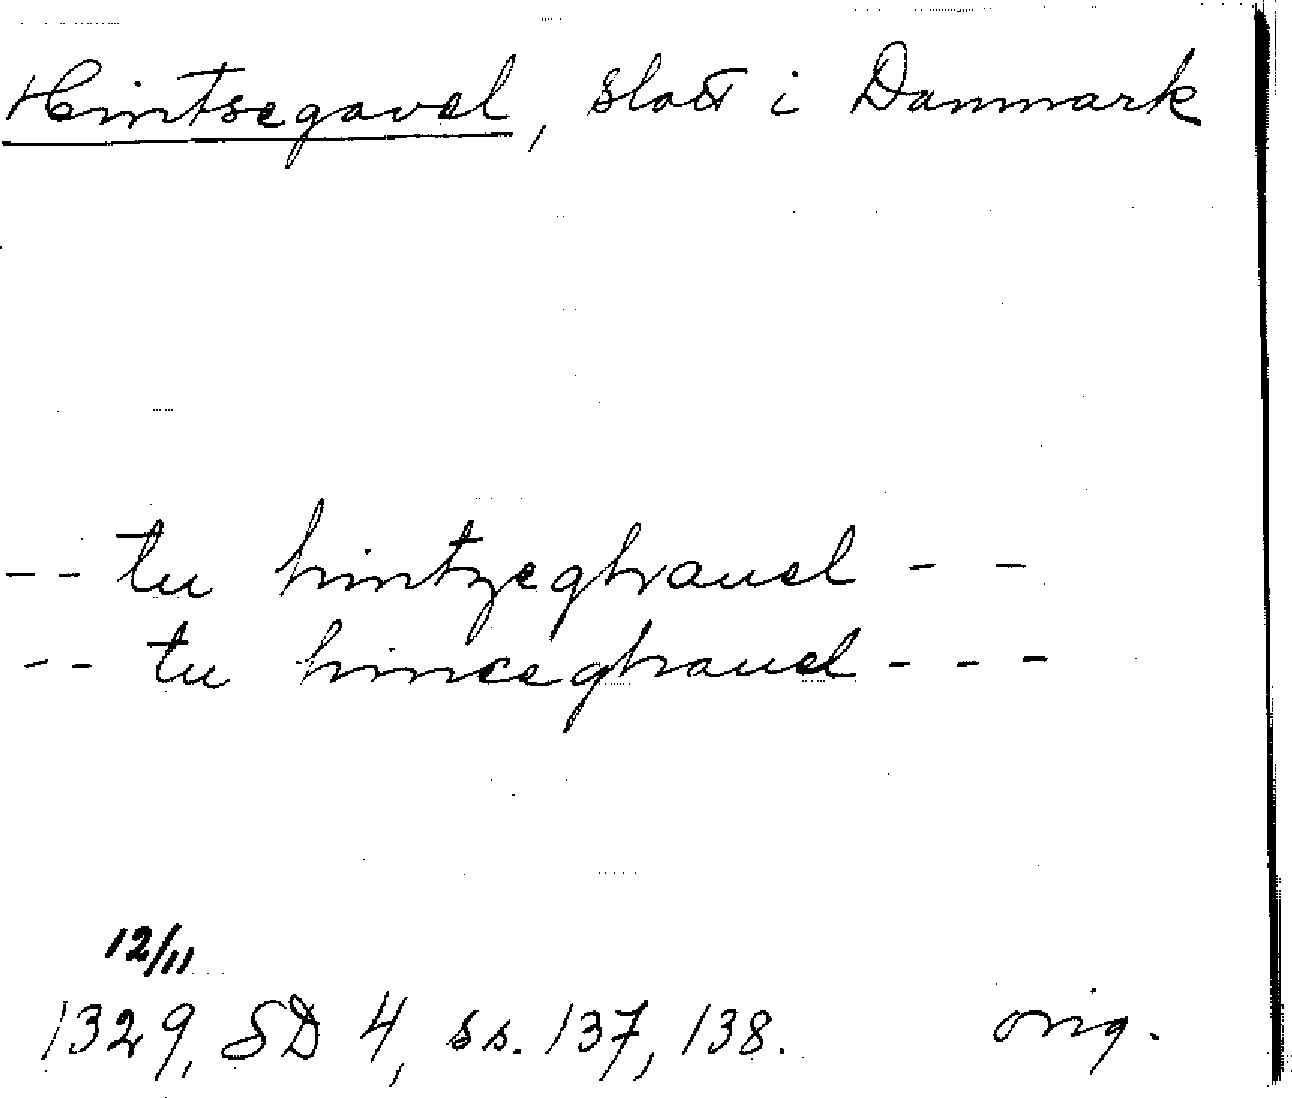 Hintsegavel, slott i Danmark
-- tu hintzeghauel --
-- tu hinceghauel ---
12/11
1329, SD 4, ss. 137, 138. orig.